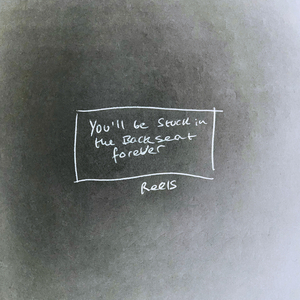 You'll be Stuck in
the Backseat
forever
Reels